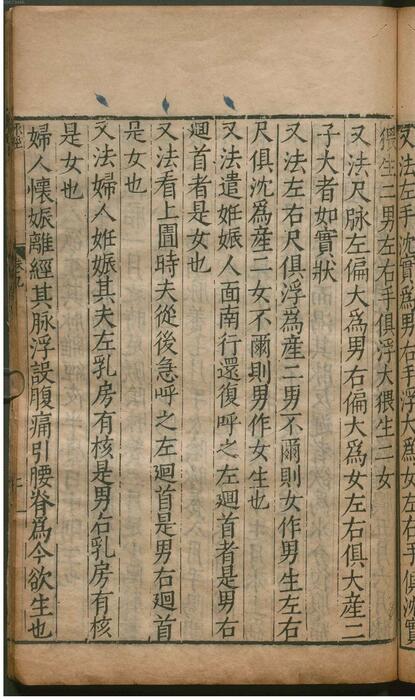 又法左手沈實爲男右手浮大爲女左右手俱沈實
猥生二男左右手俱浮大猥生二女
又法尺脉左偏大爲男右偏大爲女左右俱大産二
子大者如實狀
又法左右尺俱浮爲産二男不爾則女作男生左右
尺俱沈爲産二女不爾則男作女生也
又法遣姙娠人面南行還復呼之左迴首者是男右
迴首者是女也
又法看上圊時夫從後急呼之左迴首是男右迴首
是女也
又法婦人姙娠其夫左乳房有核是男右乳房有核
是女也
婦人懷娠離經其脉浮設腹痛引腰脊爲今欲生也